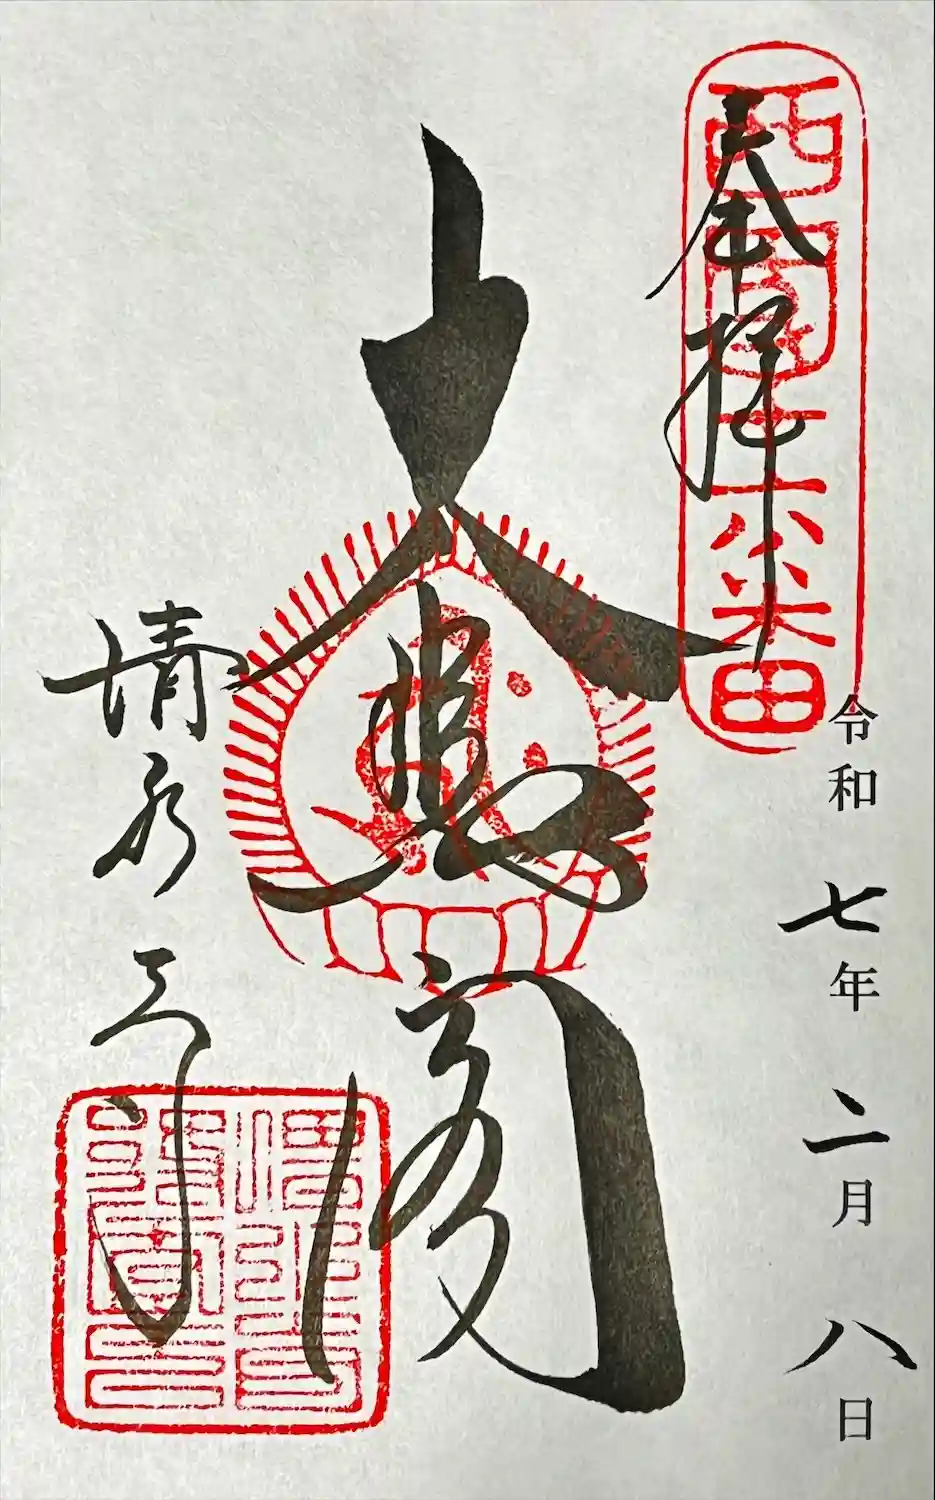 奉拝
西國十六番
令和 七年 二月 八日
大悲閣
清水寺